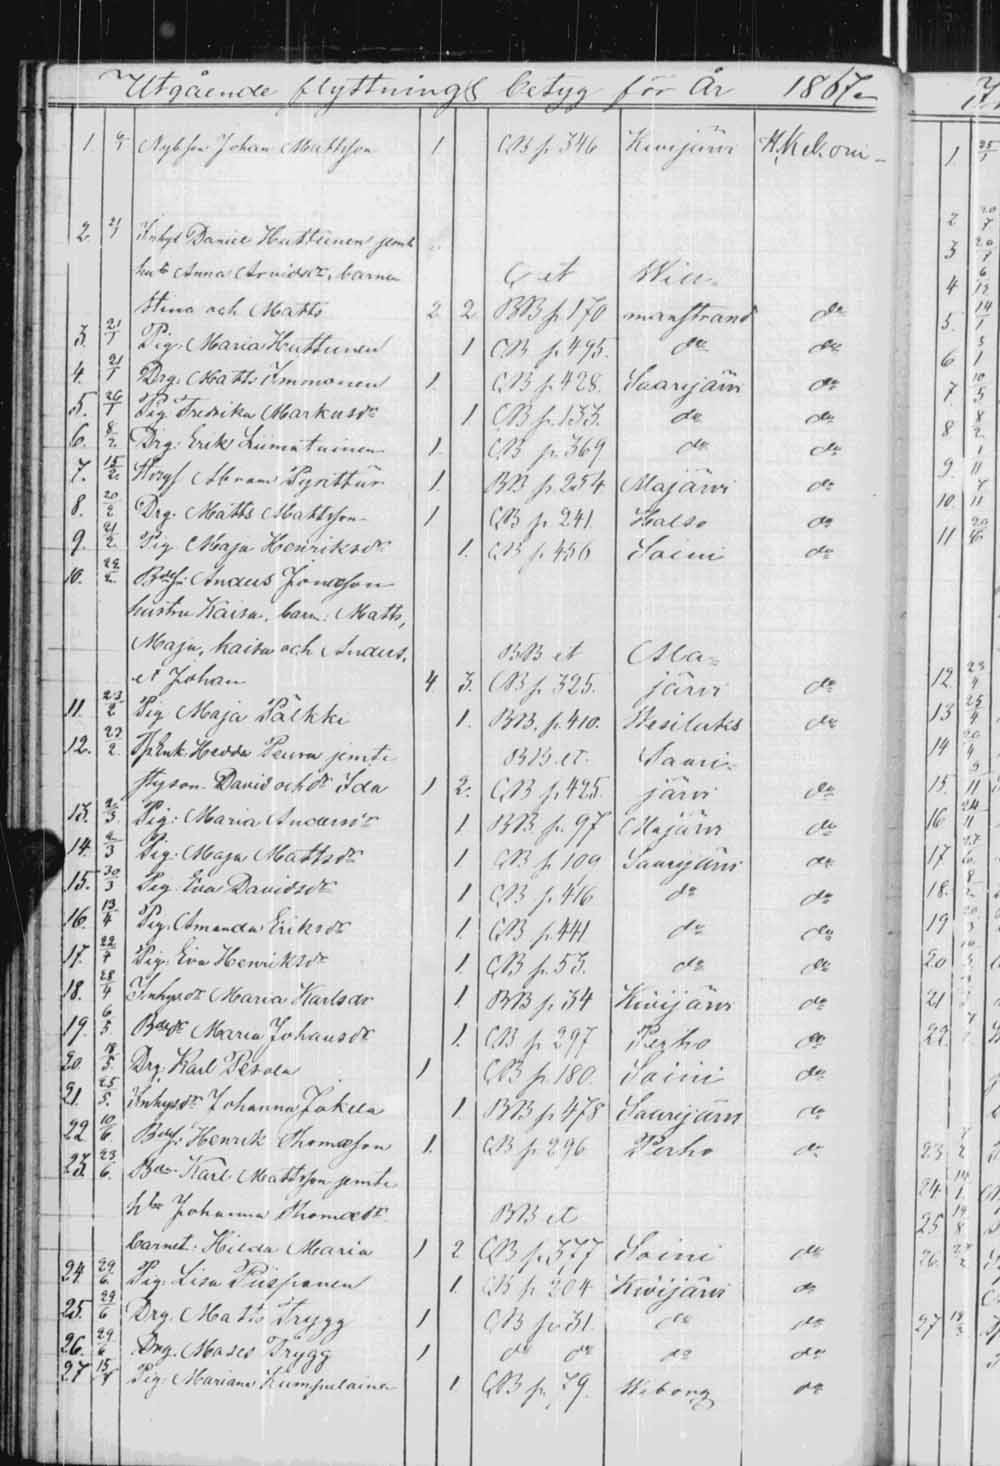 Utgående flyttnings betyg för År 1867
1. Nybson Johan Mattsson 1 CB p. 346 Kivijärvi
2. 21/1 Inhys Daniel Huttunen jemte
hust. Anna Arvidsdr, barnen C et Wia-
Stina och Matts 2 2 BB p. 170 manstrand do
3. 21/1 Pig. Maria Huttunen 1 CB p. 495. do do
4. 21/1 Drg. Matts Immonen 1. CB p. 428. Saarijärvi do
5. 26/1 Pig. Fredrika Markusdr 1 CB p. 133. do do
6. 8/2 Drg. Erik Liimatainen 1. CB p. 369 do do
7. 15/2 Abram 1. BB p. 254 Alajärvi do
8. 20/2 Drg. Matts Mattsson 1 CB p. 241. Halso do
9. 21/2 Pig. Maja Henriksdr 1. CB p. 456 Soini do
10. 22/2 Bdes. Anders Jonasson
hustru Kaisa, barn: Matts,
Maja, Kaisa och Anders, BB et Ala-
et Johan 4 3. CB p. 325. järvi do
11. 23/2 Pig Maja Pälkki 1. BB. p. 410. Wesilaks do
12. 22/2 Enk. Hedda Peura jemte BB. et. Saari-
styson David och dr Ida 1 2. CB p. 425. järvi do
13. 2/3 Pig: Maria Andersdr 1 BB. p. 97 Alajärvi do
14. 2/3 Pig. Maja Mattsdr 1 CB p. 109 Saarijärvi do
15. 30/3 Pig. Eva Davidsdr 1 CB p. 416 do do
16. 13/4 Pig. Amanda Eriksdr 1. CB p. 441 do do
17. 22/4 Pig. Eva Henriksdr 1. CB p. 53. do do
18. 28/4 Inhysdr Maria Karlsdr 1. BB p. 34 Kivijärvi do
19. 6/5 Bdedr Maria Johansdr 1. CB p 297 Perho do
20. 18/5. Drg. Karl Pesola 1 CB p. 180. Soini do
21. 25/5. Inhysdr Johanna Jokela 1. BB p. 478 Saarijärvi do
22 10/6. Bdes. Henrik Thomasson 1. CB p. 296 Perho do
23. 23/6. Bde. Karl Mattsson jemte
hu Johanna Thomasdr BB et
barnet. Hilda Maria 1 2 CB p. 377 Soini do
24. 29/6. Pig. Lisa Piispanen 1. CB p 204 Kivijärvi do
25. 29/6 Drg. Matts Trygg 1 CB p. 31. do do
26. 29/6 Drg. Moses Trygg 1 do do do do
27 15/7 Pig. Mariana Kumpulainen 1. CB p. 79. Wiborg do